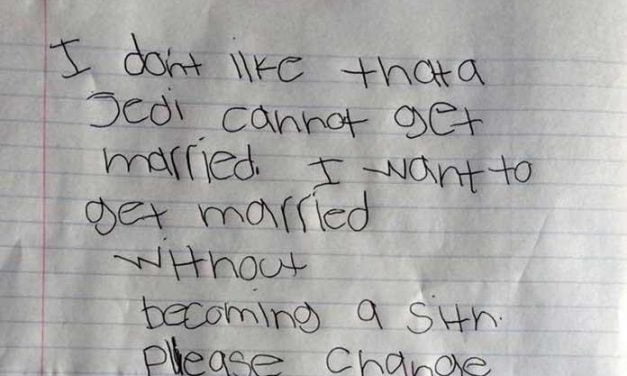 I don't like that a
Jedi cannot get
married. I want to
get married
without
becoming a Sith.
Please change